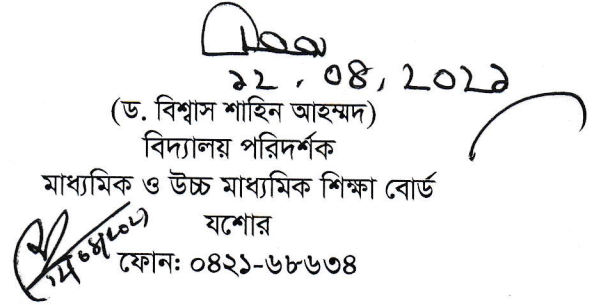 ১২.০৪.২০২১
(ড. বিশ্বাস শাহিন আহম্মদ)
বিদ্যালয় পরিদর্শক
মাধ্যমিক ও উচ্চ মাধ্যমিক শিক্ষা বোর্ড
যশোর
ফোন: ০৪২১-৬৮৬৩৪